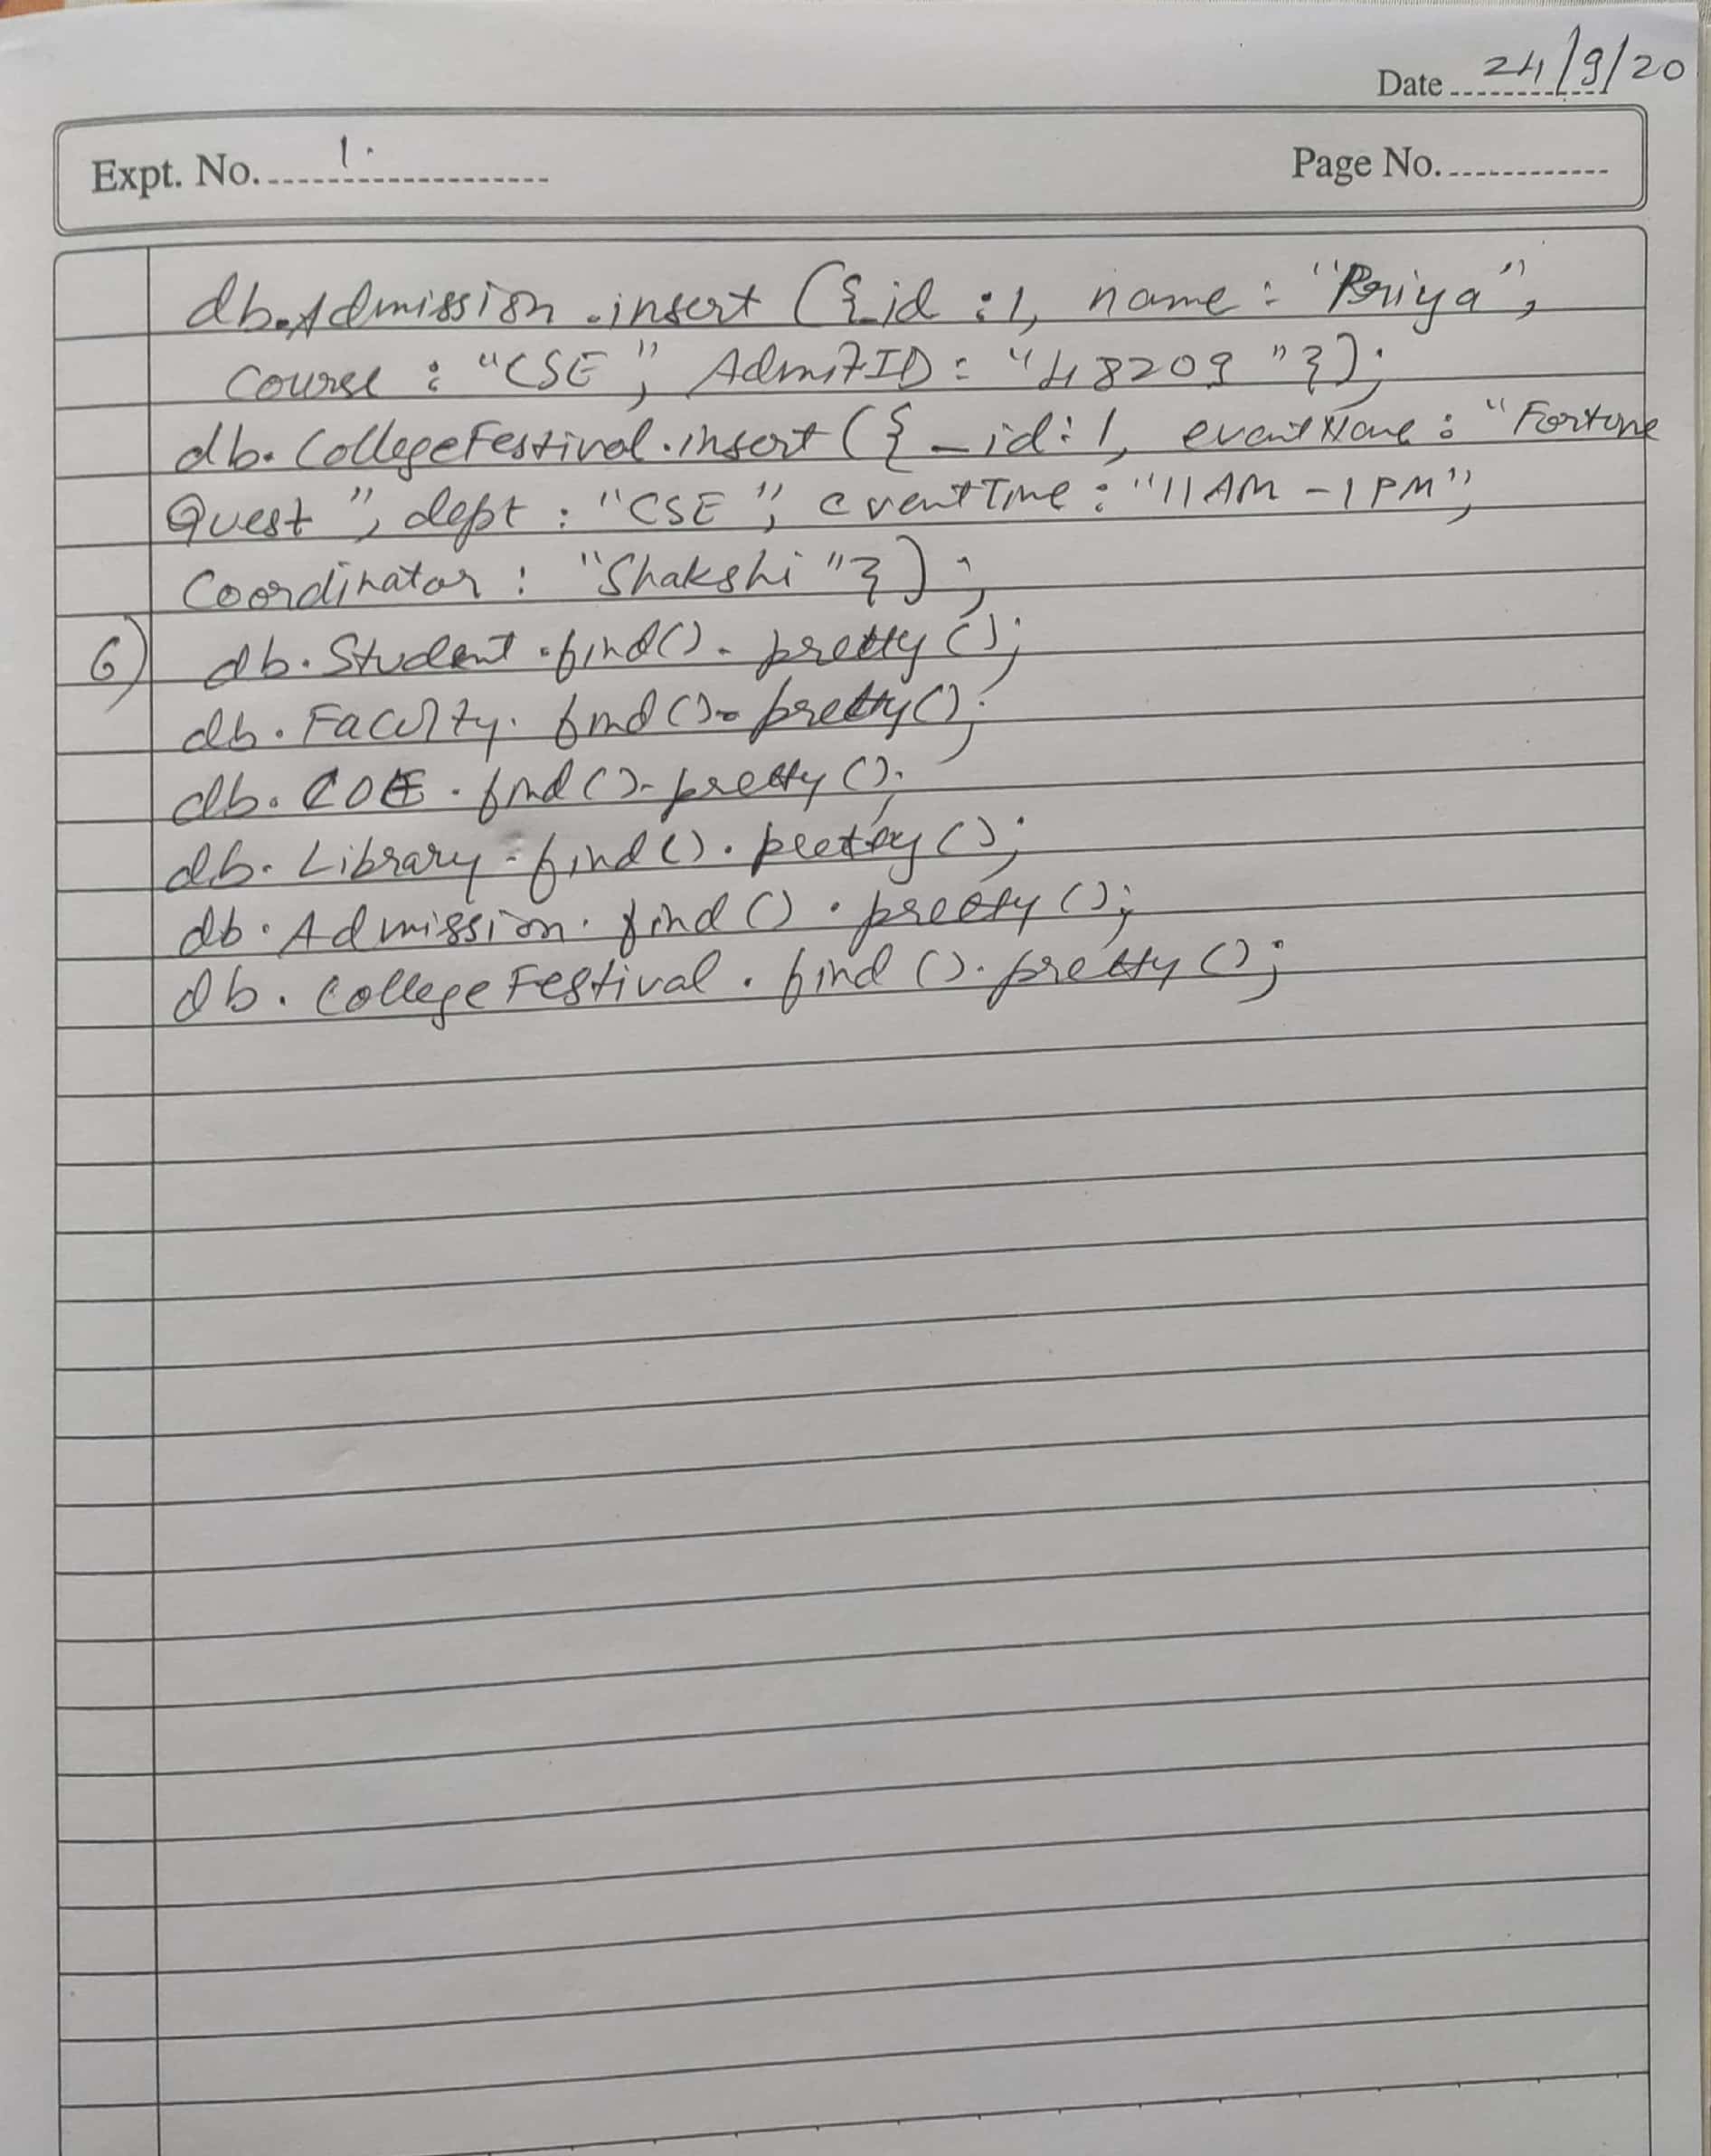 Date 24/9/20
Expt. No. 1.
Page No.
db.Admission.insert ({_id : 1, name : "Priya",
Course : "CSE", AdmitID : "48209"});
db.CollegeFestival.insert ({_id : 1, eventName : "Fortune
Quest", dept : "CSE", eventTime : "11AM - 1PM",
Coordinator : "Shakshi"});
6) db.Student.find().pretty();
db.Faculty.find().pretty();
db.COE.find().pretty();
db.Library.find().pretty();
db.Admission.find().pretty();
db.CollegeFestival.find().pretty();